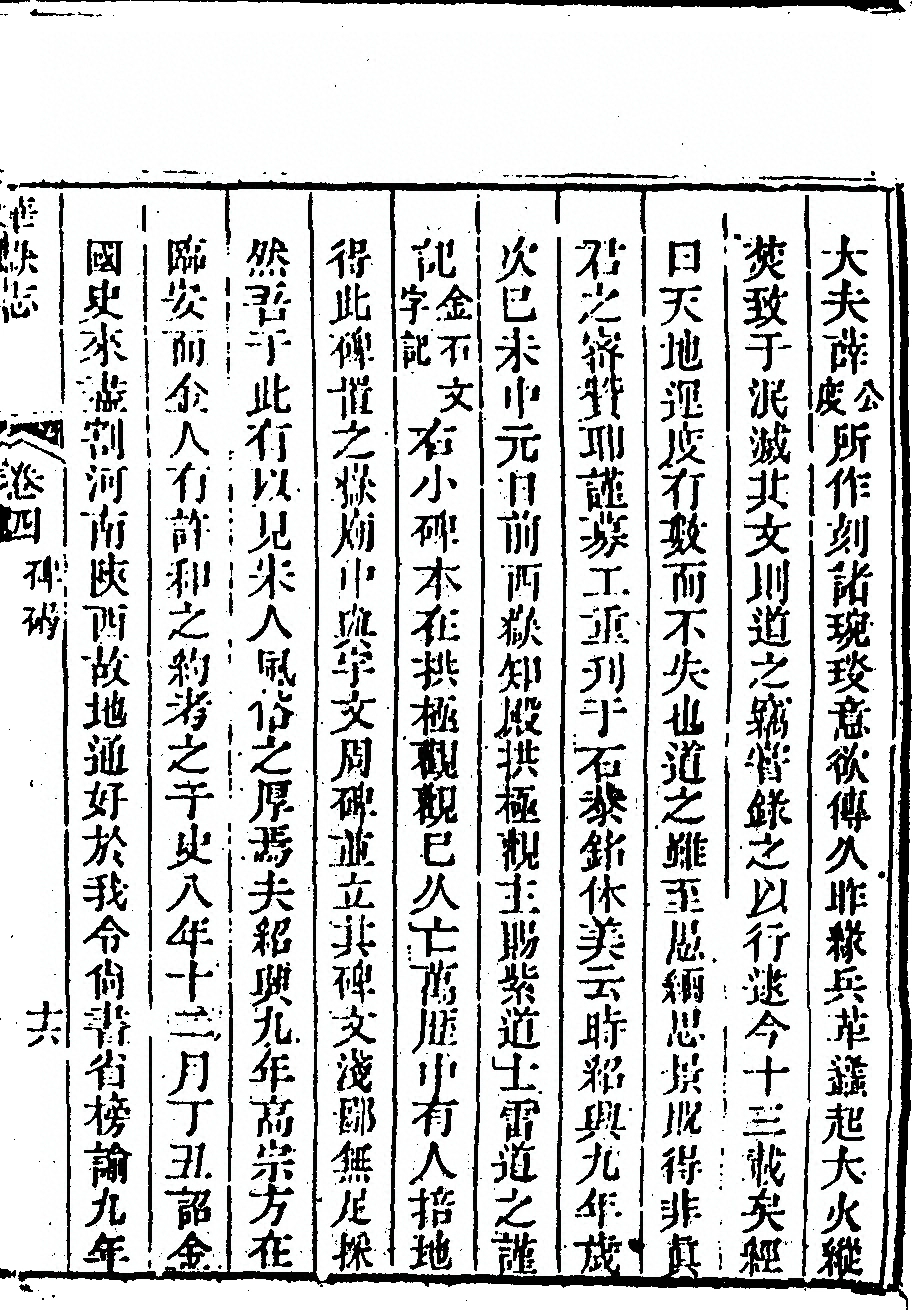 大夫薛公度所作刻諸琬琰意欲傳久昨緣兵革蠭起大火縱
焚致于泯滅其文則道之竊嘗錄之以行逮今十三載矣經
曰天地運度有數而不失也道之雖至愚緬思景貺得非真
君之密贊耶謹募工重刋于石恭銘休美云時紹興九年歲
次巳未中元日前西嶽知殿拱極觀主賜紫道士雷道之謹
記金石文字記右小碑本在拱極觀觀巳久亡萬厯中有人掊地
得此碑置之嶽廟中與宇文周碑並立其碑文淺鄙無足採
然吾于此有以見宋人風俗之厚焉夫紹興九年高宗方在
臨安而金人有許和之約考之于史八年十二月丁丑詔金
國史來盡割河南陝西故地通好於我令尙書省榜諭九年
華嶽志
卷四
碑碣
十六